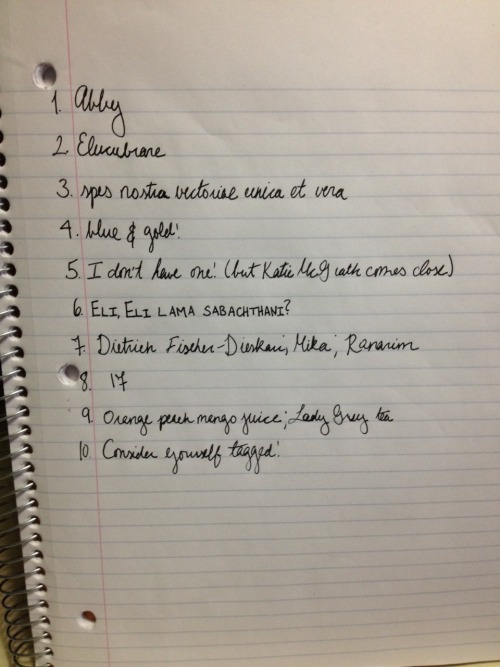 1. Abby
2. Elucubrare
3. spes nostra victoriae unica et vera
4. blue & gold!
5. I don't have one! (but Katie McGrath comes close)
6. ELI, ELI LAMA SABACHTHANI?
7. Dietrich Fischer-Dieskau, Mika, Ranarim
8. 17
9. Orange peach mango juice; Lady Grey tea
10. Consider yourself tagged!